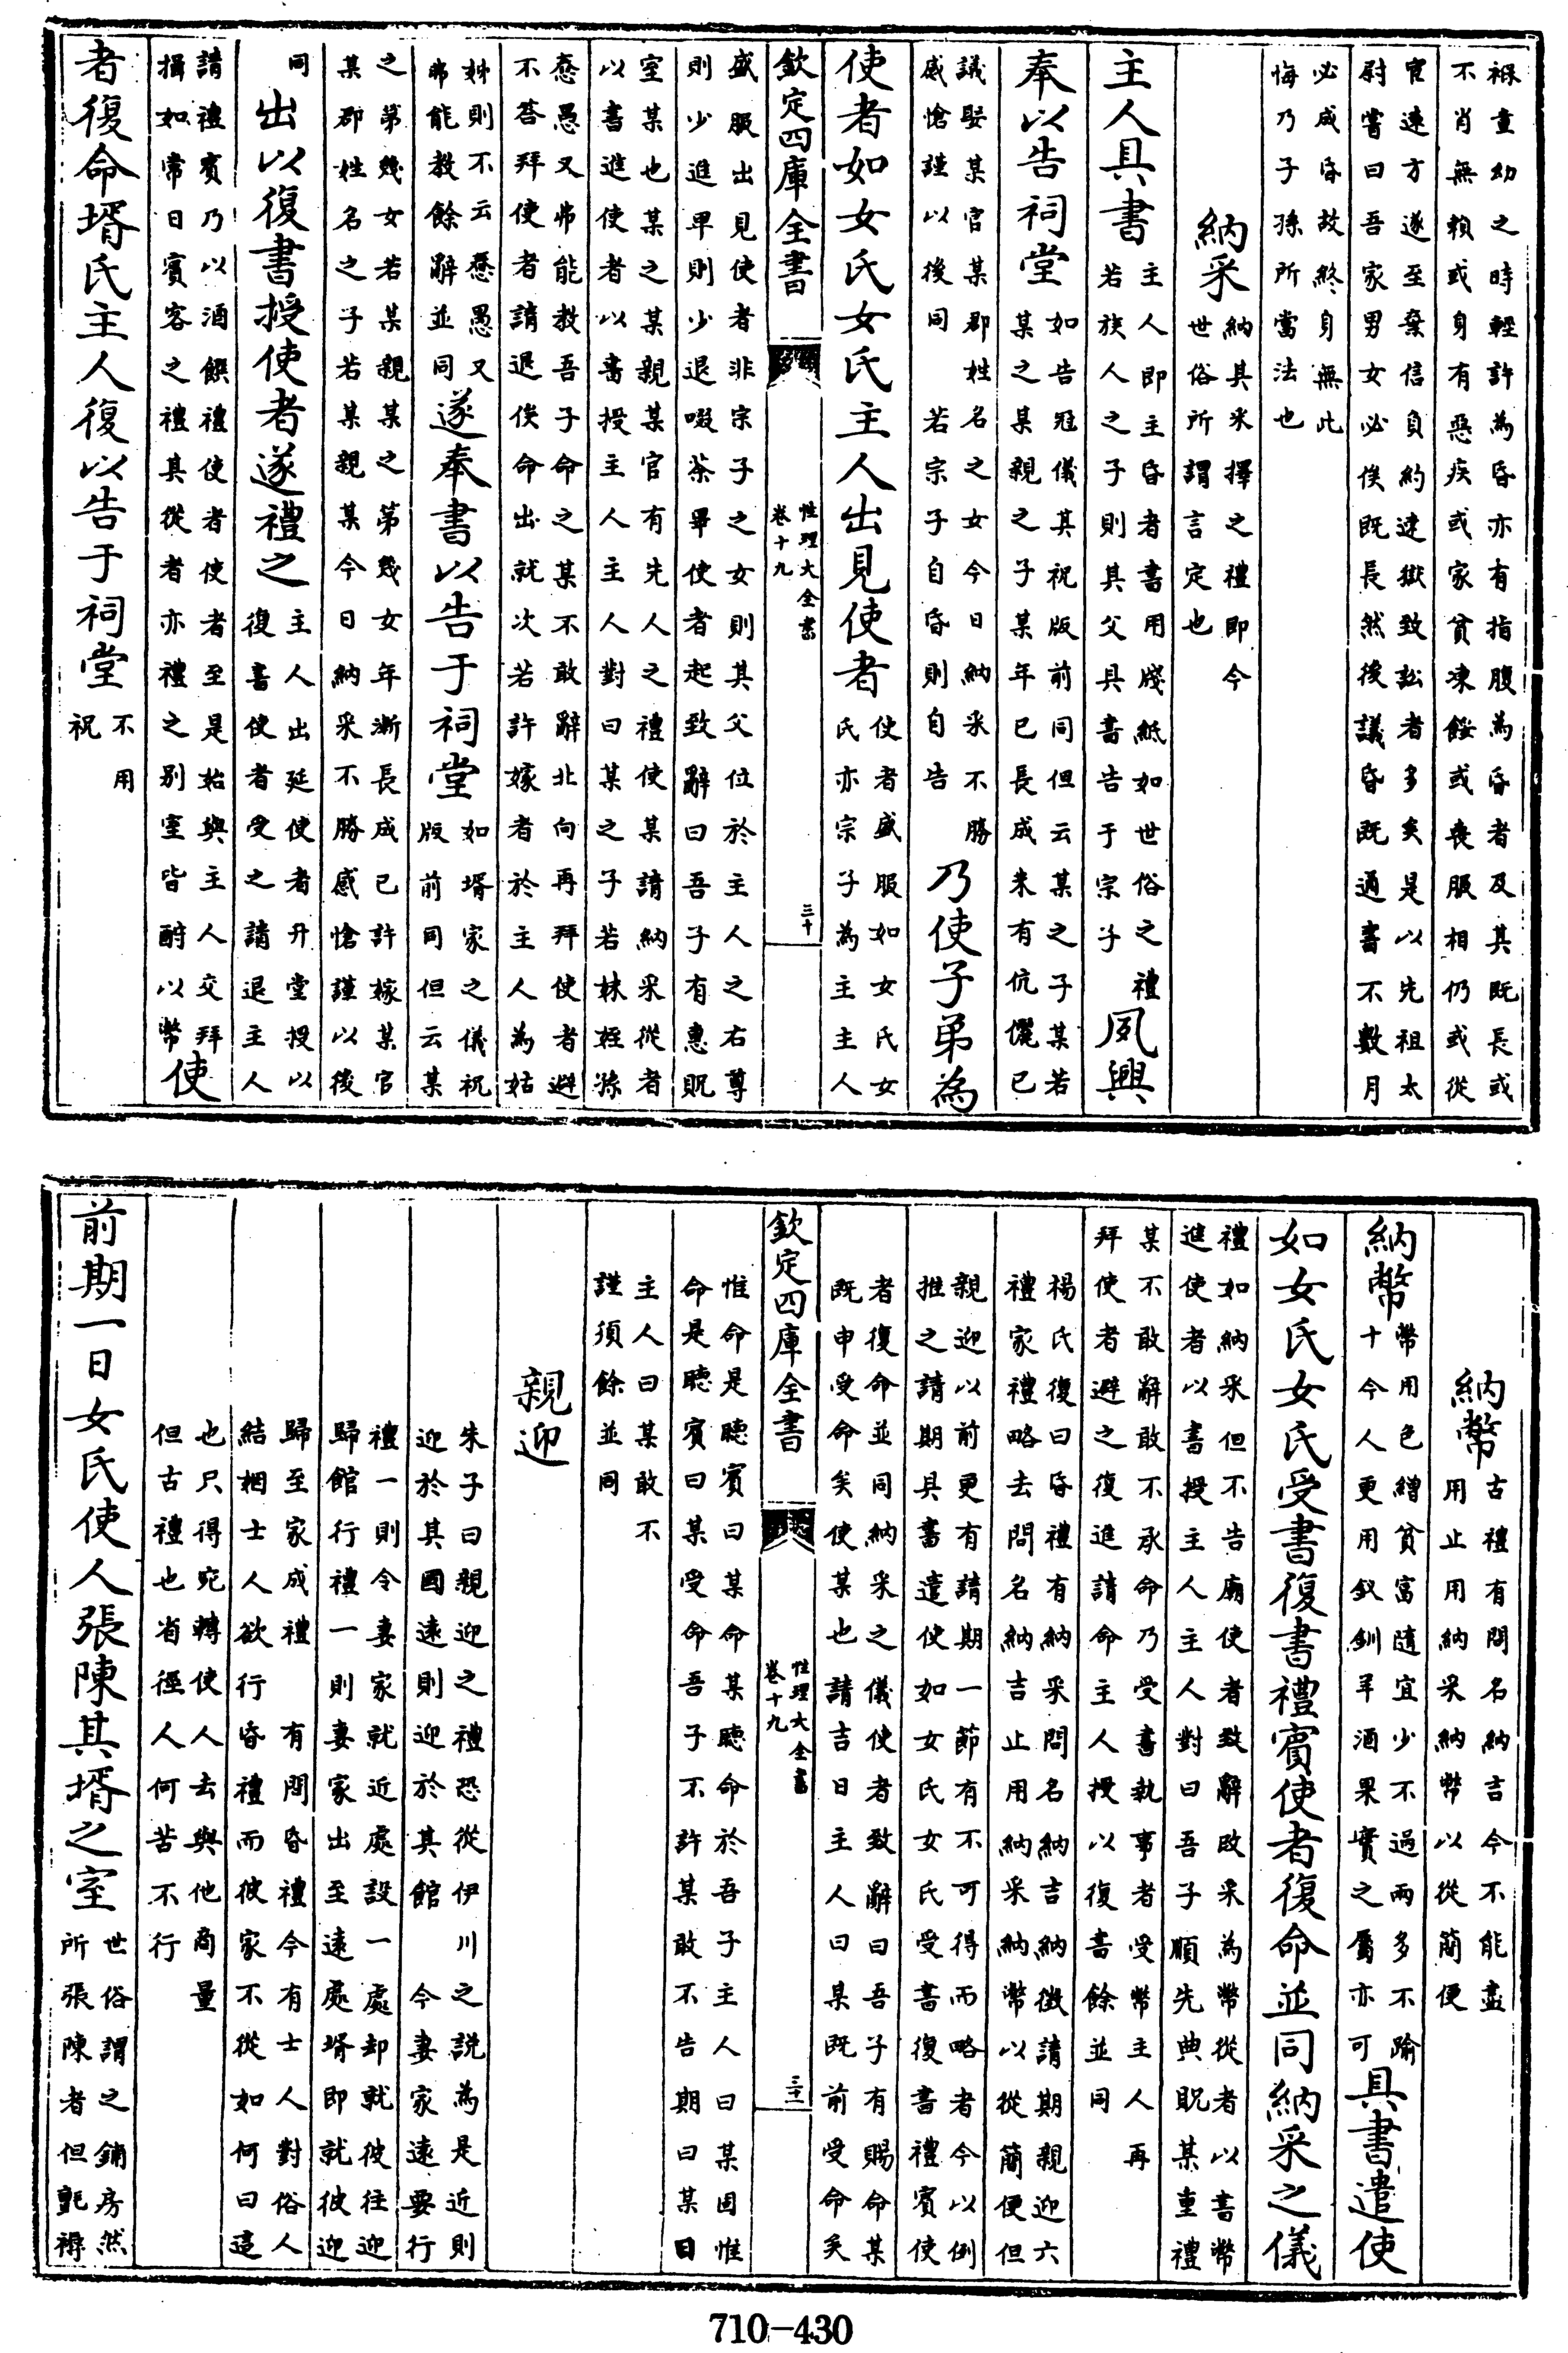 褓童幼之時輕許為昏亦有指腹為昏者及其既長或
不肖無賴或身有惡疾或家貧凍餒或喪服相仍或從
官逺方遂至棄信負約速獄致訟者多矣是以先祖太
尉嘗曰吾家男女必俟既長然後議昏既通書不數月
必成昏故終身無此
悔乃子孫所當法也
納采
納其采擇之禮即今
世俗所謂言定也
主人具書
主人即主昏者書用牋紙如世俗之禮
若族人之子則其父具書告于宗子
夙興
奉以告祠堂
如告冠儀其祝版前同但云某之子某若
某之某親之子某年已長成未有伉儷已
議娶某官某郡姓名之女今日納采不勝
感愴謹以後同 若宗子自昏則自告
乃使子弟為
使者如女氏女氏主人出見使者
使者盛服如女氏女
氏亦宗子為主主人
欽定四庫全書
性理大全書
卷十九
三十
盛服出見使者非宗子之女則其父位於主人之右尊
則少進卑則少退啜茶畢使者起致辭曰吾子有惠貺
室某也某之某親某官有先人之禮使某請納采從者
以書進使者以書授主人主人對曰某之子若妹姪孫
惷愚又弗能教吾子命之某不敢辭北向再拜使者避
不答拜使者請退俟命出就次若許嫁者於主人為姑
姊則不云惷愚又
弗能教餘辭並同
遂奉書以告于祠堂
如壻家之儀祝
版前同但云某
之第幾女若某親某之第幾女年漸長成已許嫁某官
某郡姓名之子若某親某今日納采不勝感愴謹以後
同
出以復書授使者遂禮之
主人出延使者升堂授以
復書使者受之請退主人
請禮賓乃以酒饌禮使者使者至是始與主人交拜
揖如常日賓客之禮其從者亦禮之別室皆酧以幣
使
者復命壻氏主人復以告于祠堂
不用
祝
納幣
古禮有問名納吉今不能盡
用止用納采納幣以從簡便
納幣
幣用色繒貧富隨宜少不過兩多不踰
十今人更用釵釧羊酒果實之屬亦可
具書遣使
如女氏女氏受書復書禮賓使者復命並同納采之儀
禮如納采但不告廟使者致辭改采為幣從者以書幣
進使者以書授主人主人對曰吾子順先典貺某重禮
某不敢辭敢不承命乃受書執事者受幣主人再
拜使者避之復進請命主人授以復書餘並同
楊氏復曰昏禮有納采問名納吉納徴請期親迎六
禮家禮略去問名納吉止用納采納幣以從簡便但
親迎以前更有請期一節有不可得而略者今以例
推之請期具書遣使如女氏女氏受書復書禮賓使
者復命並同納采之儀使者致辭曰吾子有賜命某
既申受命矣使某也請吉日主人曰某既前受命矣
欽定四庫全書
性理大全書
卷十九
三十一
惟命是聽賓曰某命某聽命於吾子主人曰某固惟
命是聽賓曰某受命吾子不許某敢不告期曰某日
主人曰某敢不
謹須餘並同
親迎
朱子曰親迎之禮恐從伊川之說為是近則
迎於其國逺則迎於其館 今妻家逺要行
禮一則令妻家就近處設一處却就彼往迎
歸館行禮一則妻家出至逺處壻即就彼迎
歸至家成禮 有問昏禮今有士人對俗人
結婣士人欲行昏禮而彼家不從如何曰這
也只得宛轉使人去與他商量
但古禮也省徑人何苦不行
前期一日女氏使人張陳其壻之室
世俗謂之鋪房然
所張陳者但氊褥
710-430